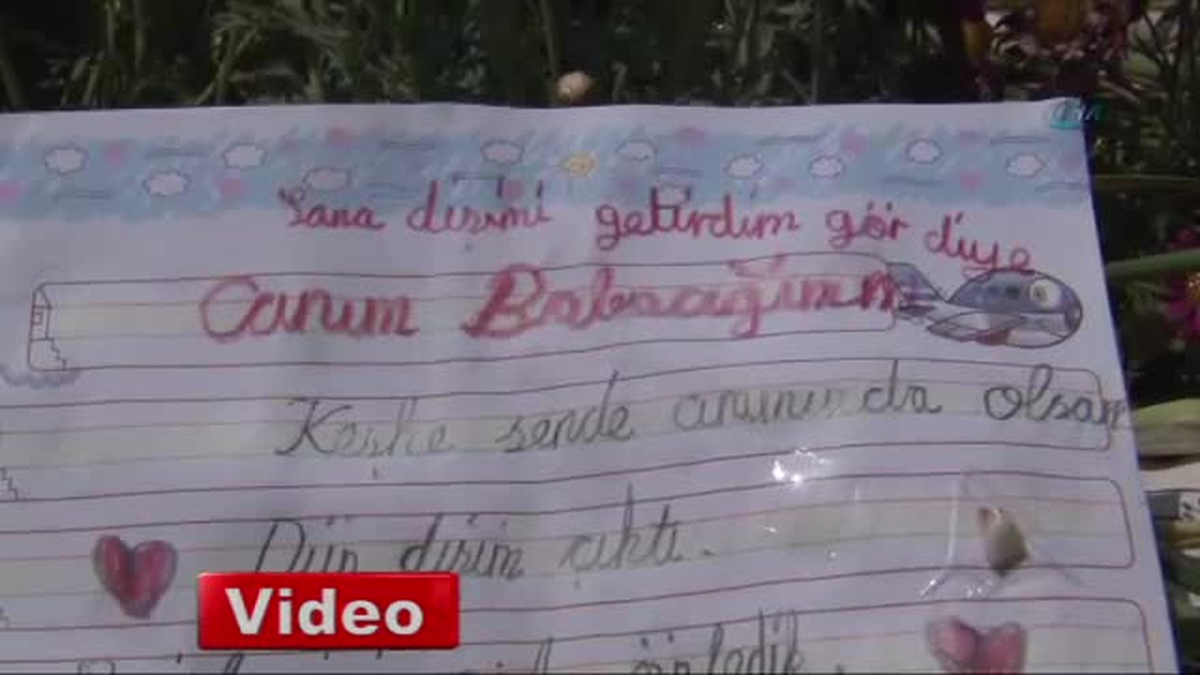 Sana dişimi getirdim gör diye
Canım Babacığımm
Keşke sende aramızda olsan
Dün dişim çıktı.
Video